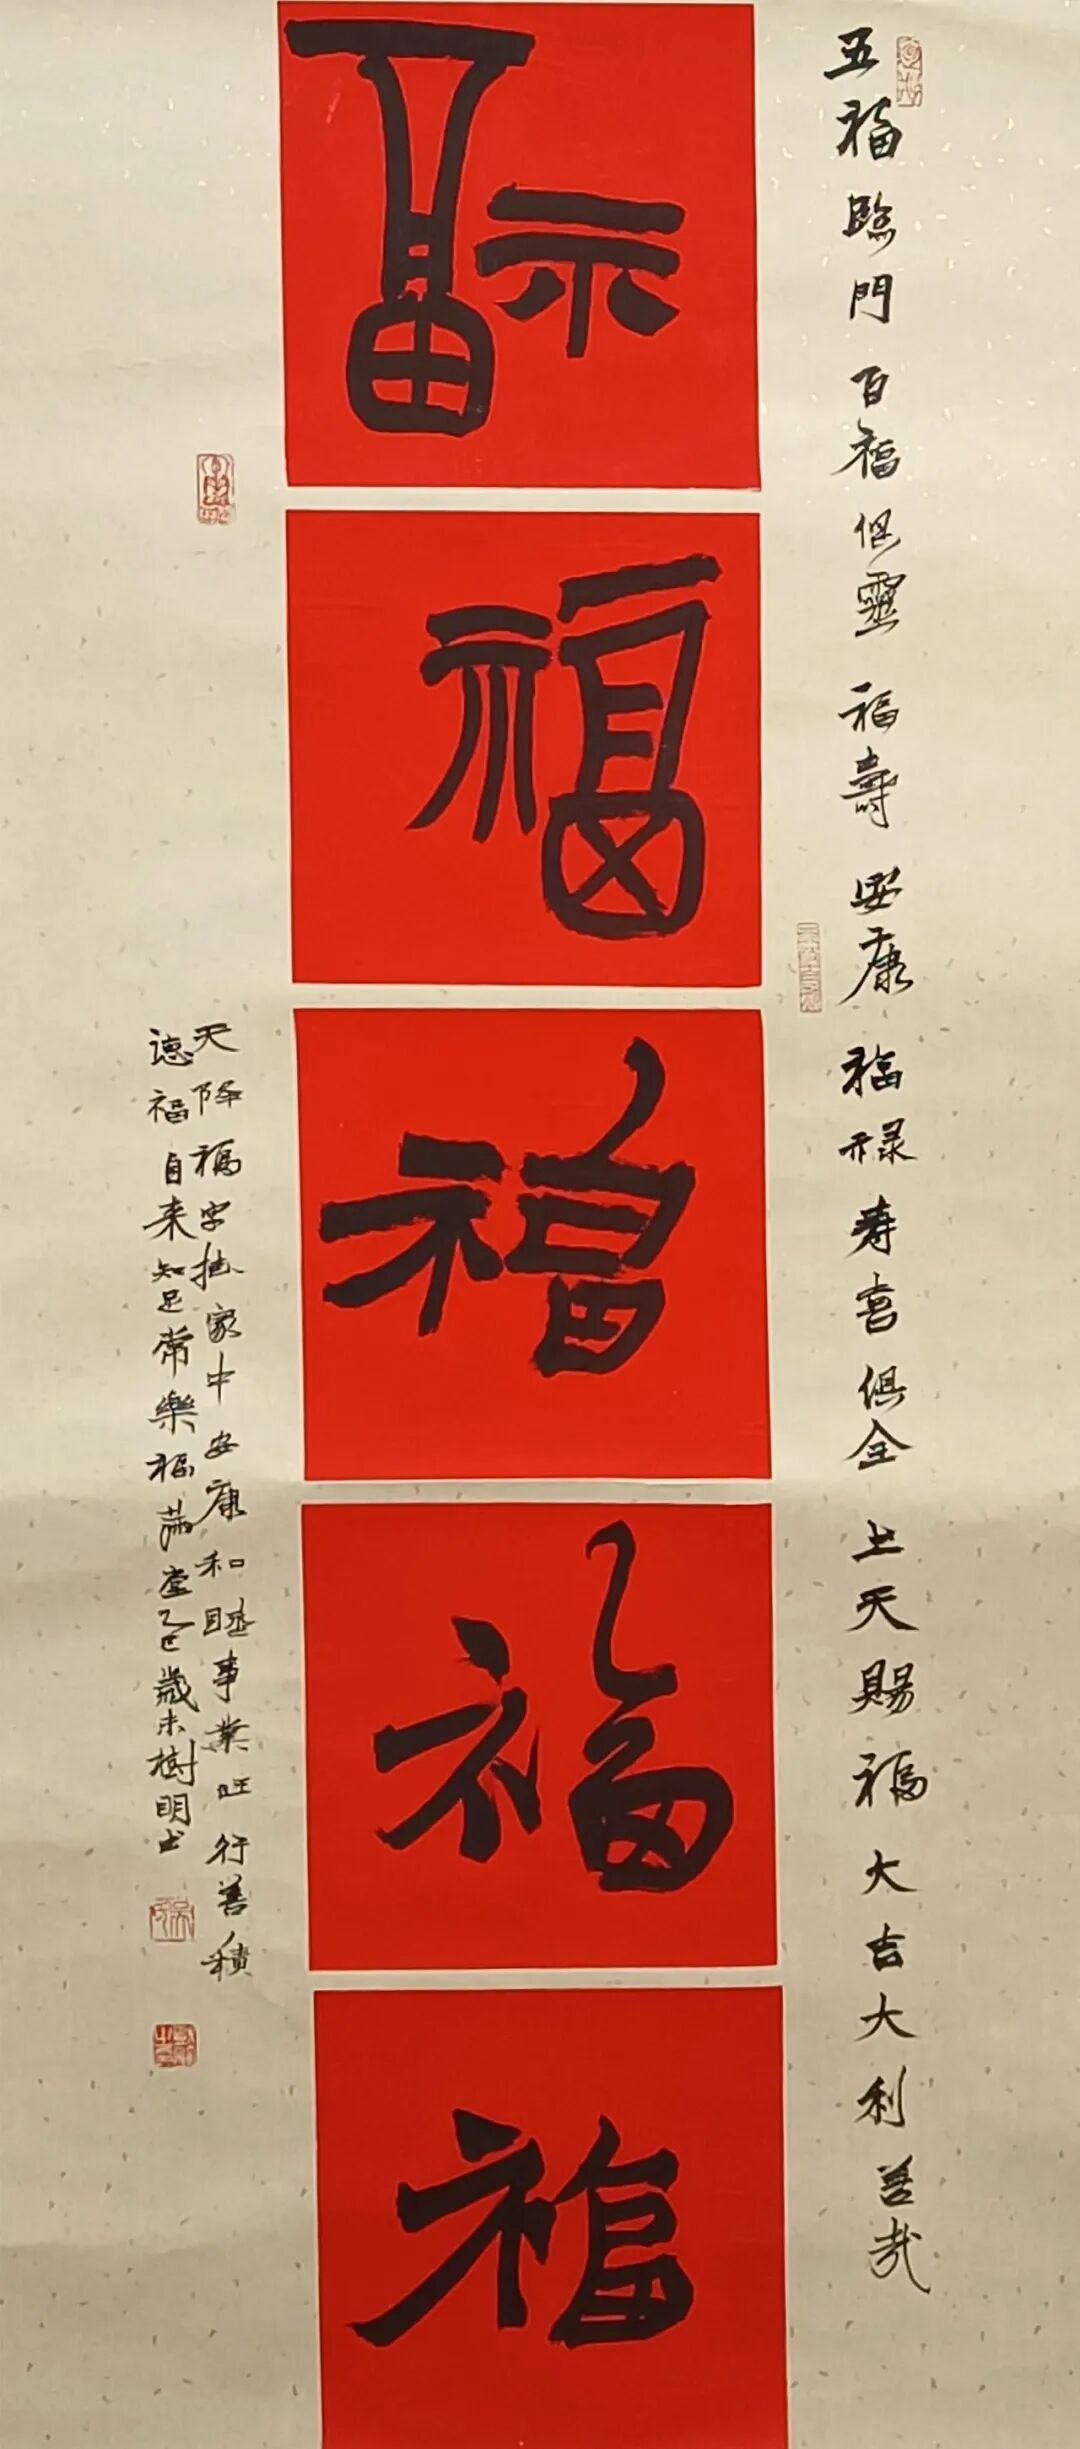 五福臨門 百福俱靈 福壽安康 福祿寿喜俱全 上天賜福 大吉大利善哉
福
福
福
福
福
天降福字挂家中安康和睦事業旺行善積
德福自来知足常樂福满堂乙巳歲末樹明书